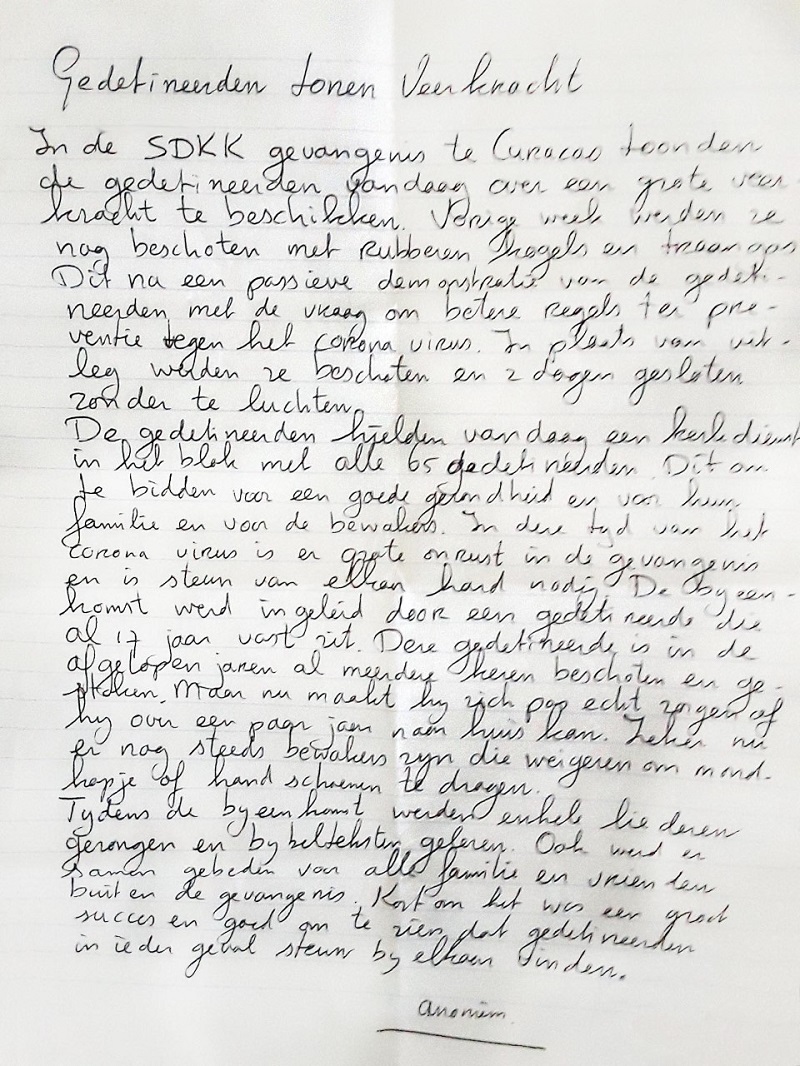 Gedetineerden tonen Veerkracht
In de SDKK gevangenis te Curacao toonden
de gedetineerden vandaag over een grote veer-
kracht te beschikken. Vorige week werden ze
nog beschoten met Rubberen kogels en traangas
Dit na een passieve demonstratie van de gedeti-
neerden met de vraag om betere regels ter pre-
ventie tegen het corona virus. In plaats van uit-
leg werden ze beschoten en 2 dagen gesloten
zonder te luchten.
De gedetineerden hielden vandaag een kerkdienst
in het blok met alle 65 gedetineerden. Dit om
te bidden voor een goede gezondheid en voor hun
familie en voor de bewakers. In deze tyd van het
corona virus is er grote onrust in de gevangenis
en is steun van elkaar hard nodig. De byeen-
komst werd ingeleid door een gedetineerde die
al 17 jaar vast zit. Deze gedetineerde is in de
afgelopen jaren al meerdere keren beschoten en ge-
stoken. Maar nu maakt hy zich pas echt zorgen of
hy over een paar jaar naar huis kan. Zeker nu
er nog steeds bewakers zyn die weigeren om mond-
kapje of handschoenen te dragen.
Tydens de byeenkomst werden enkele liederen
gezongen en bybelteksten gelezen. Ook werd er
samen gebeden voor alle familie en vrienden
buiten de gevangenis. Kortom het was een groot
succes en goed om te zien dat gedetineerden
in ieder geval steun by elkaar vinden.
anoniem